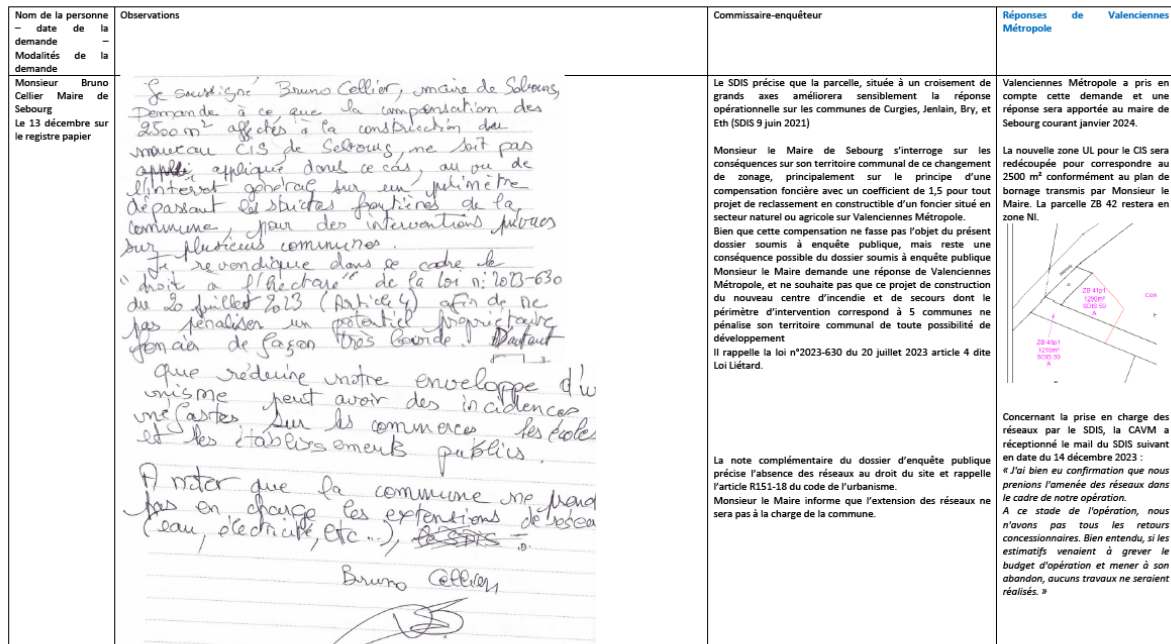 Nom de la personne
– date de la
demande –
Modalités de la
demande
Observations
Commissaire-enquêteur
Réponses de Valenciennes
Métropole
Monsieur Bruno
Cellier Maire de
Sebourg
Le 13 décembre sur
le registre papier
Je soussigné Bruno Cellier, maire de Sebourg,
Demande à ce que la compensation des
2500 m² affectés à la construction du
nouveau CIS de Sebourg, ne soit pas
appliqué dans ce cas, au vu de
l'interret générale sur un périmètre
dépassant les strictes frontières de la
commune, pour des interventions
sur plusieurs communes.
Je revendique dans ce cadre le
"droit à l'hectare" de la loi n: 2023-630
du 20 juillet 2023 (Article 4) afin de ne
pas pénaliser un potentiel propriétaire
foncier de façon très lourde. D'autant
que réduire notre enveloppe d'u
nisme peut avoir des incidences
néfastes sur les commerces les écoles
et les établissements publics.
A noter que la commune ne prend
pas en charge les extensions de résea
(eau, électricité, etc...),
Bruno Cellier
Le SDIS précise que la parcelle, située à un croisement de
grands axes améliorera sensiblement la réponse
opérationnelle sur les communes de Curgies, Jenlain, Bry, et
Eth (SDIS 9 juin 2021)
Monsieur le Maire de Sebourg s'interroge sur les
conséquences sur son territoire communal de ce changement
de zonage, principalement sur le principe d'une
compensation foncière avec un coefficient de 1,5 pour tout
projet de reclassement en constructible d'un foncier situé en
secteur naturel ou agricole sur Valenciennes Métropole.
Bien que cette compensation ne fasse pas l'objet du présent
dossier soumis à enquête publique, mais reste une
conséquence possible du dossier soumis à enquête publique
Monsieur le Maire demande une réponse de Valenciennes
Métropole, et ne souhaite pas que ce projet de construction
du nouveau centre d'incendie et de secours dont le
périmètre d'intervention correspond à 5 communes ne
pénalise son territoire communal de toute possibilité de
développement
Il rappelle la loi n°2023-630 du 20 juillet 2023 article 4 dite
Loi Liétard.
La note complémentaire du dossier d'enquête publique
précise l'absence des réseaux au droit du site et rappelle
l'article R151-18 du code de l'urbanisme.
Monsieur le Maire informe que l'extension des réseaux ne
sera pas à la charge de la commune.
Valenciennes Métropole a pris en
compte cette demande et une
réponse sera apportée au maire de
Sebourg courant janvier 2024.
La nouvelle zone UL pour le CIS sera
redécoupée pour correspondre au
2500 m² conformément au plan de
bornage transmis par Monsieur le
Maire. La parcelle ZB 42 restera en
zone Nl.
ZB 41p1
1290m²
SDIS 59
A
ZB 43p1
1210m²
SDIS 59
A
Concernant la prise en charge des
réseaux par le SDIS, la CAVM a
réceptionné le mail du SDIS suivant
en date du 14 décembre 2023 :
« J'ai bien eu confirmation que nous
prenions l'amenée des réseaux dans
le cadre de notre opération.
A ce stade de l'opération, nous
n'avons pas tous les retours
concessionnaires. Bien entendu, si les
estimatifs venaient à grever le
budget d'opération et mener à son
abandon, aucuns travaux ne seraient
réalisés. »